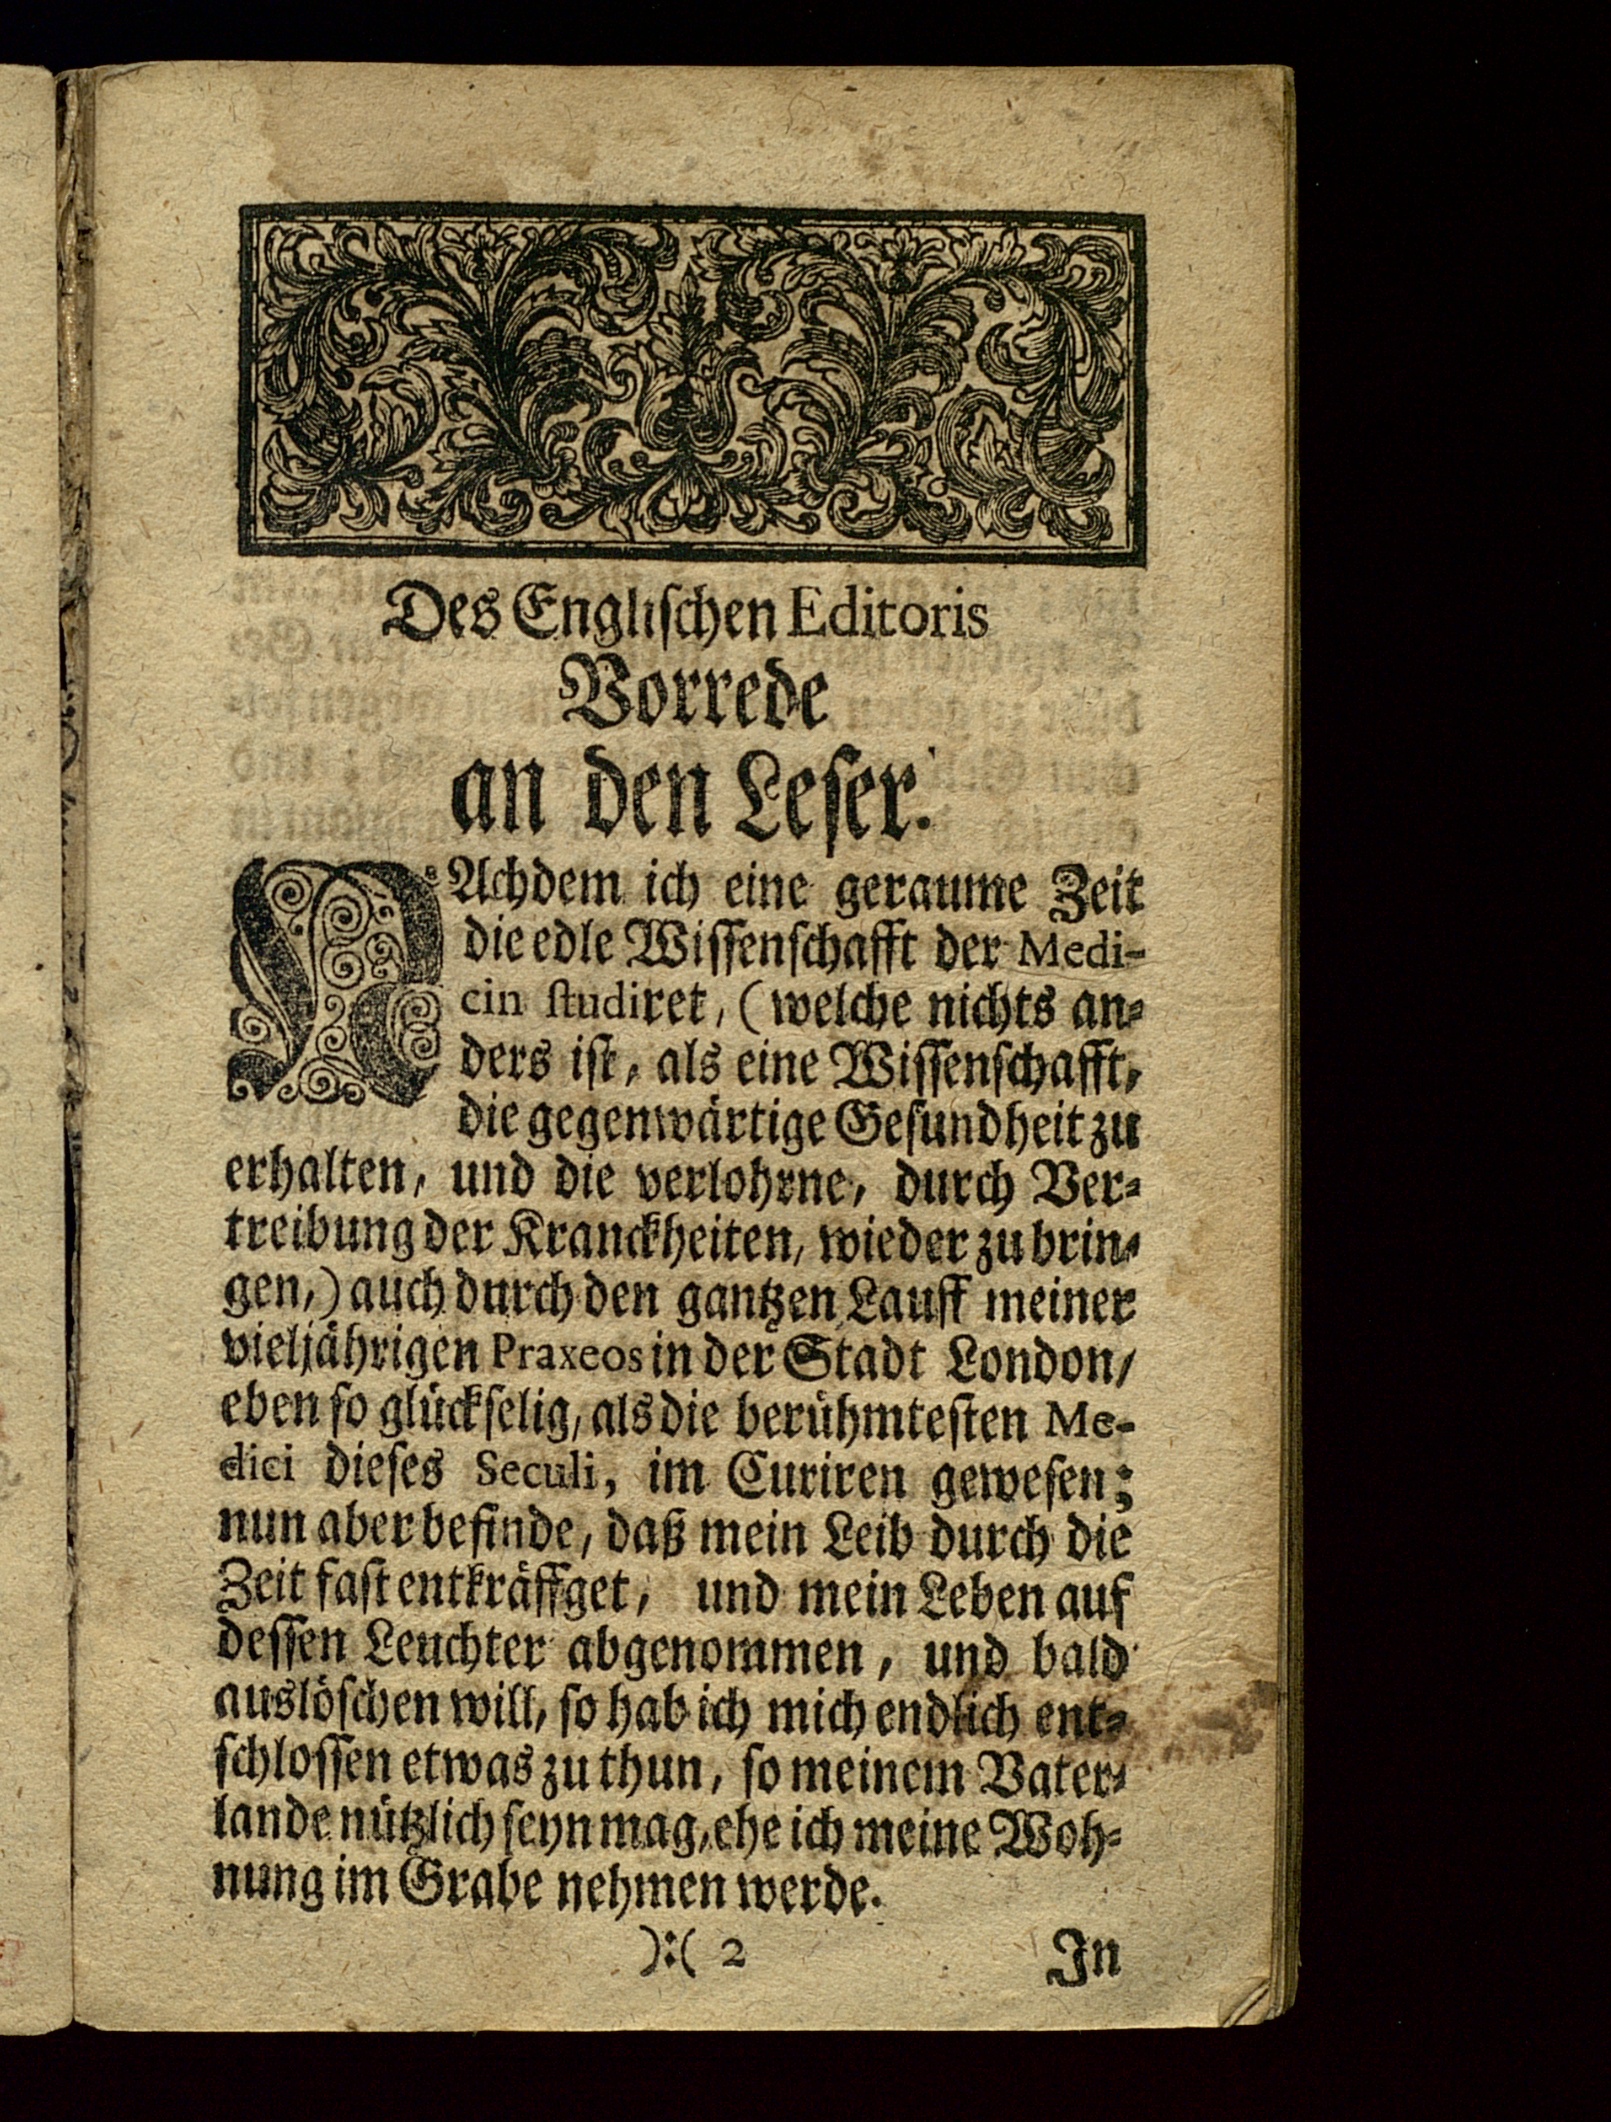 Des Englischen Editoris
Vorrede
an den Leser.
NAchdem ich eine geraume Zeit
die edle Wissenschafft der Medi-
cin studiret, (welche nichts an-
ders ist, als eine Wissenschafft,
die gegenwärtige Gesundheit zu
erhalten, und die verlohrne, durch Ver-
treibung der Kranckheiten, wieder zu brin-
gen,) auch durch den gantzen Lauff meiner
vieljährigen Praxeos in der Stadt London/
eben so glückselig, als die berühmtesten Me-
dici dieses Seculi, im Curiren gewesen;
nun aber befinde, daß mein Leib durch die
Zeit fast entkräffget, und mein Leben auf
dessen Leuchter abgenommen, und bald
auslöschen will, so hab ich mich endlich ent-
schlossen etwas zu thun, so meinem Vater-
lande nützlich seyn mag, ehe ich meine Woh-
nung im Grabe nehmen werde.
):( 2 In